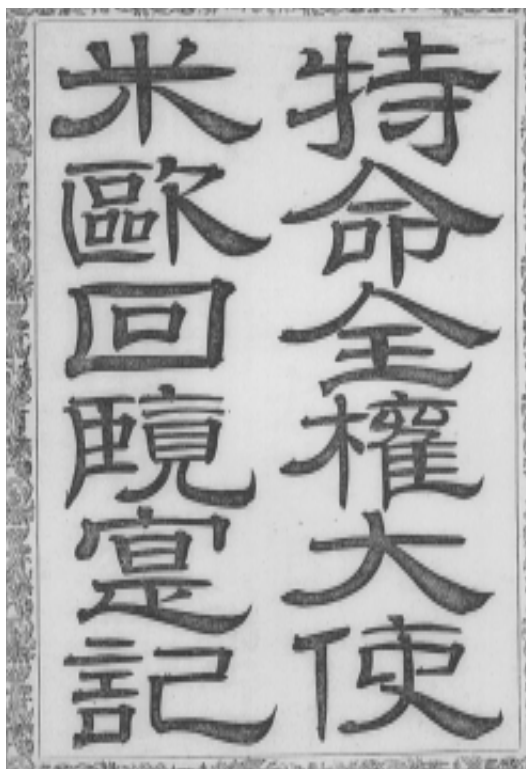 特命全權大使
米歐回覽寔記